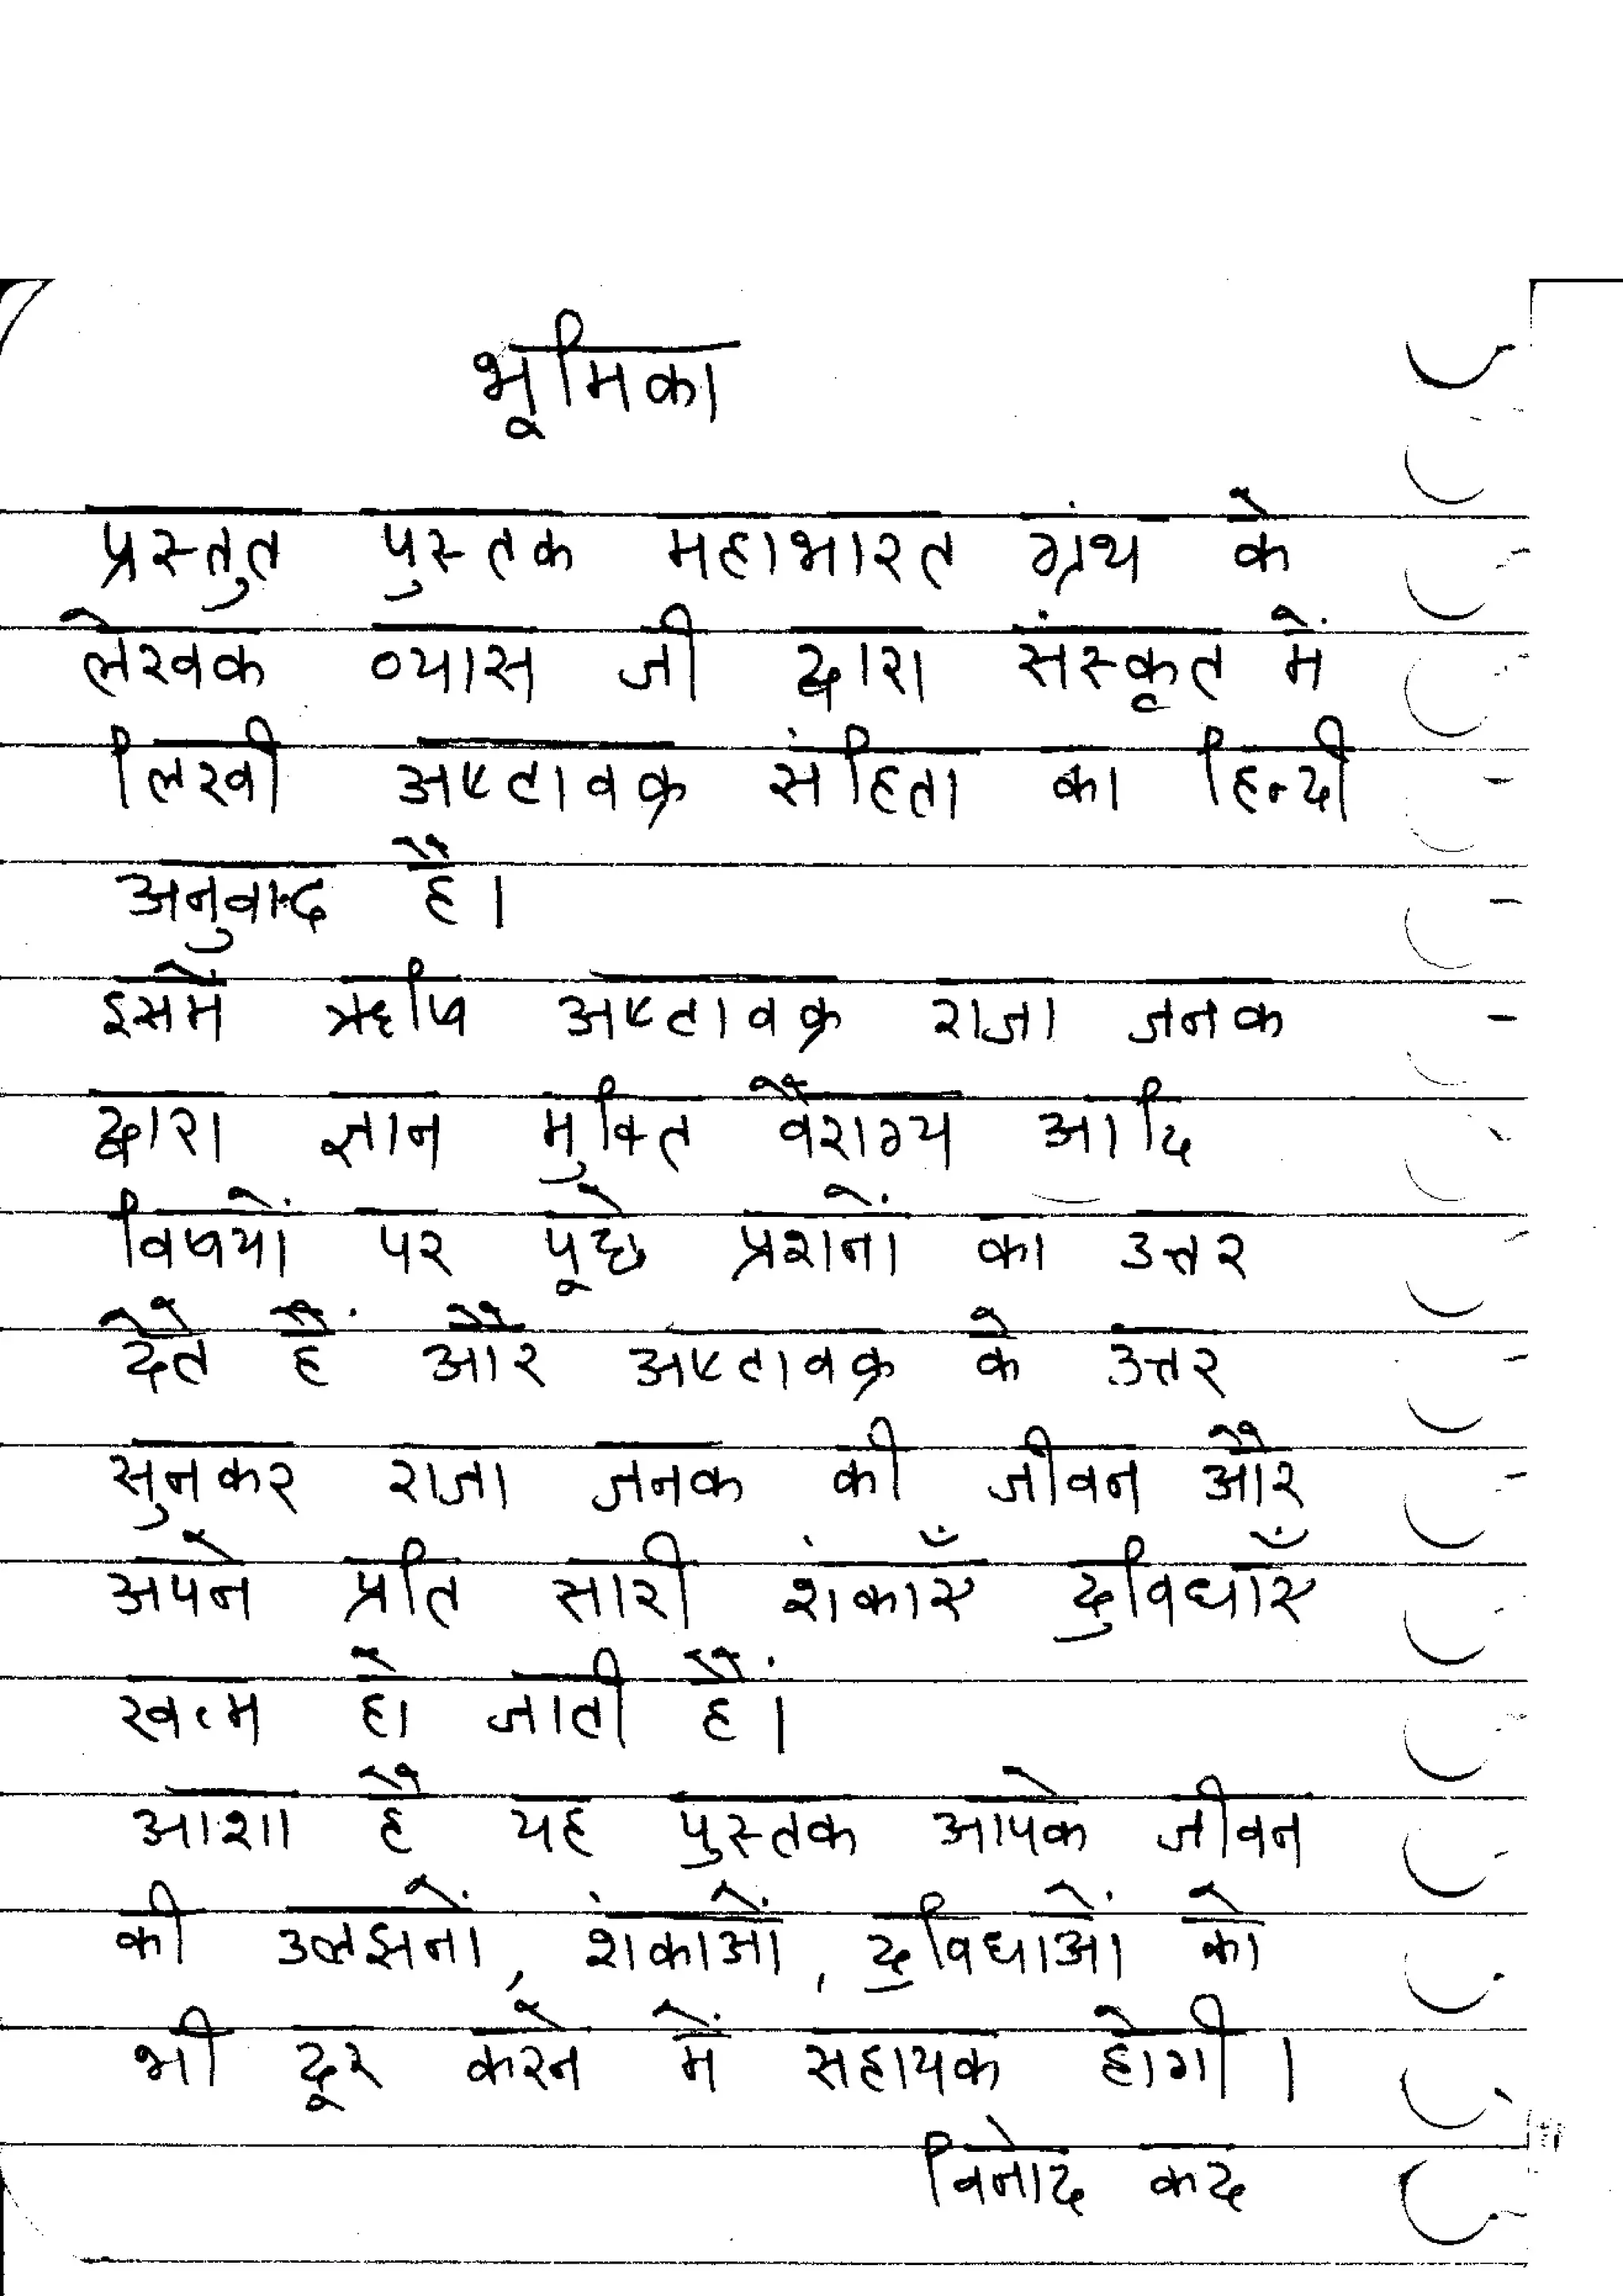 भूमिका
प्रस्तुत पुस्तक महाभारत ग्रंथ के
लेखक व्यास जी द्वारा संस्कृत में
लिखी अष्टावक्र संहिता का हिन्दी
अनुवाद है।
इसमें ऋषि अष्टावक्र राजा जनक
द्वारा ज्ञान मुक्ति वैराग्य आदि
विषयों पर पूछे प्रशनों का उत्तर
देते हैं और अष्टावक्र के उत्तर
सुनकर राजा जनक की जीवन और
अपने प्रति सारी शंकाएँ दुविधाएँ
खत्म हो जाती हैं।
आशा है यह पुस्तक आपके जीवन
की उलझनों, शंकाओं, दुविधाओं को
भी दूर करने में सहायक होगी।
विनोद कद